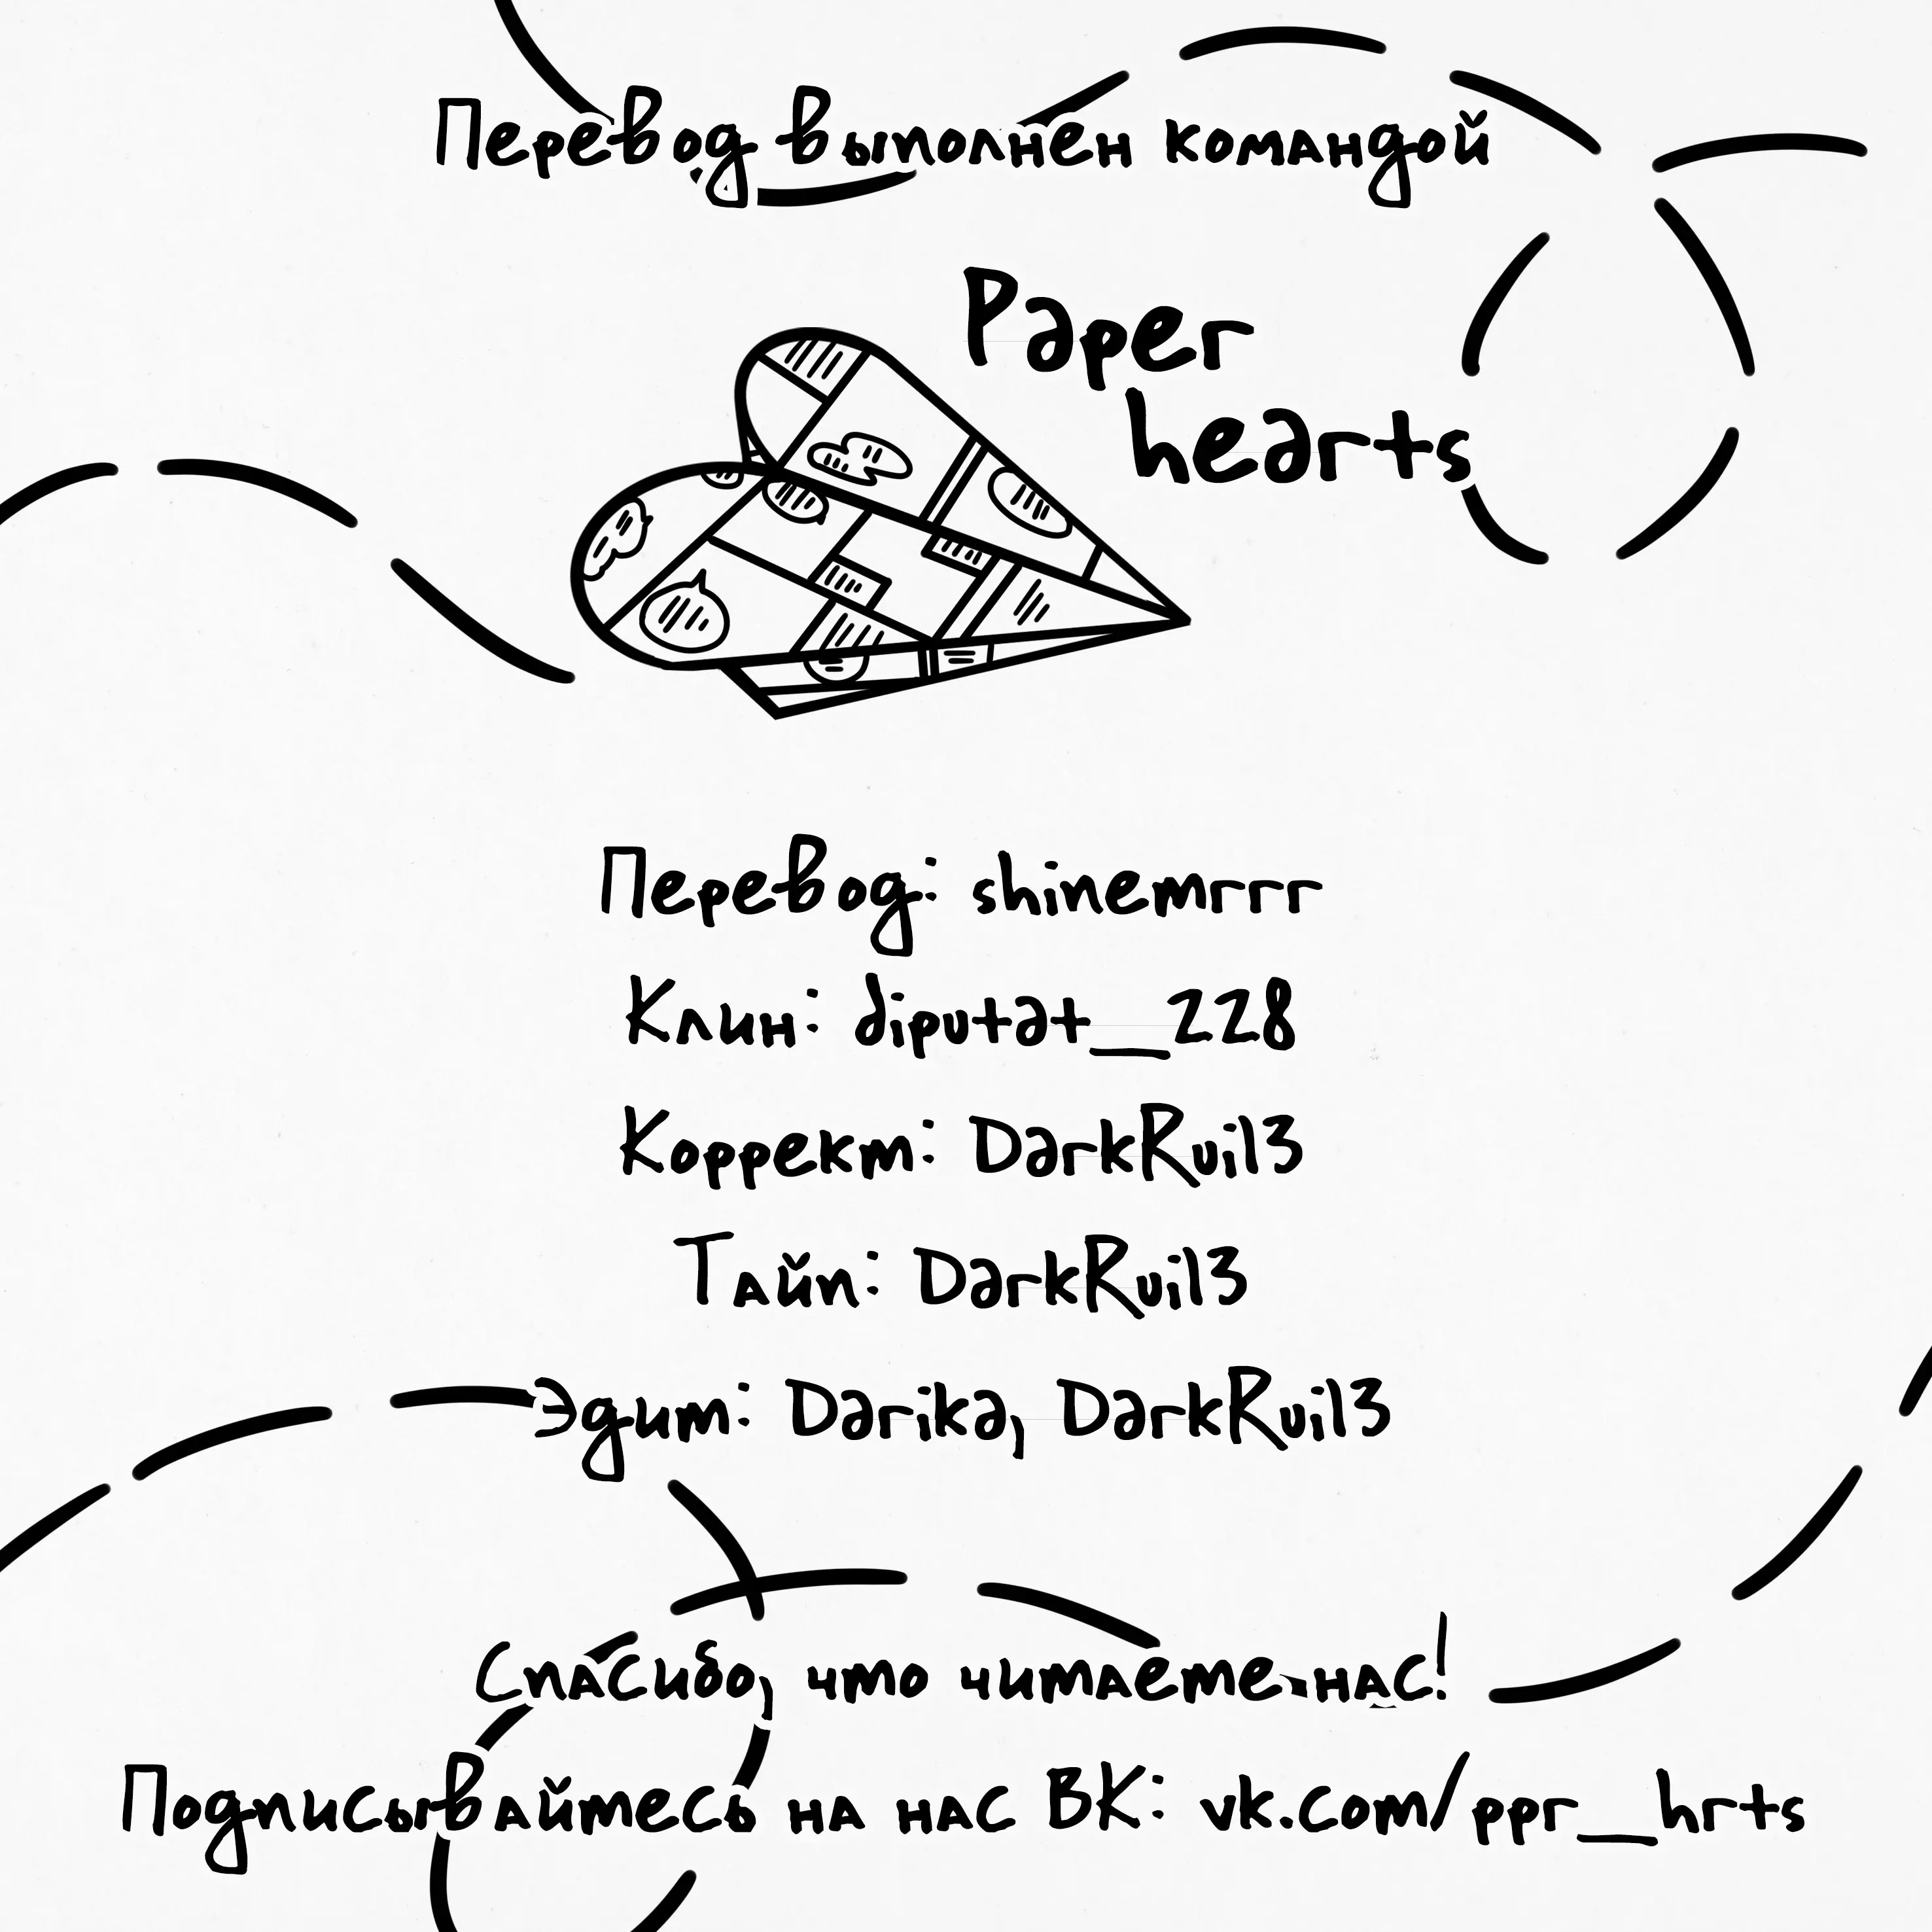 Перевод выполнен командой
Paper
hearts
Перевод: shinemrrr
Клин: diputat__228
Коррект: DarkRuil3
Тайп: DarkRuil3
Эдит: Darika, DarkRuil3
Спасибо, что читаете нас!
Подписывайтесь на нас ВК: vk.com/ppr__hrts